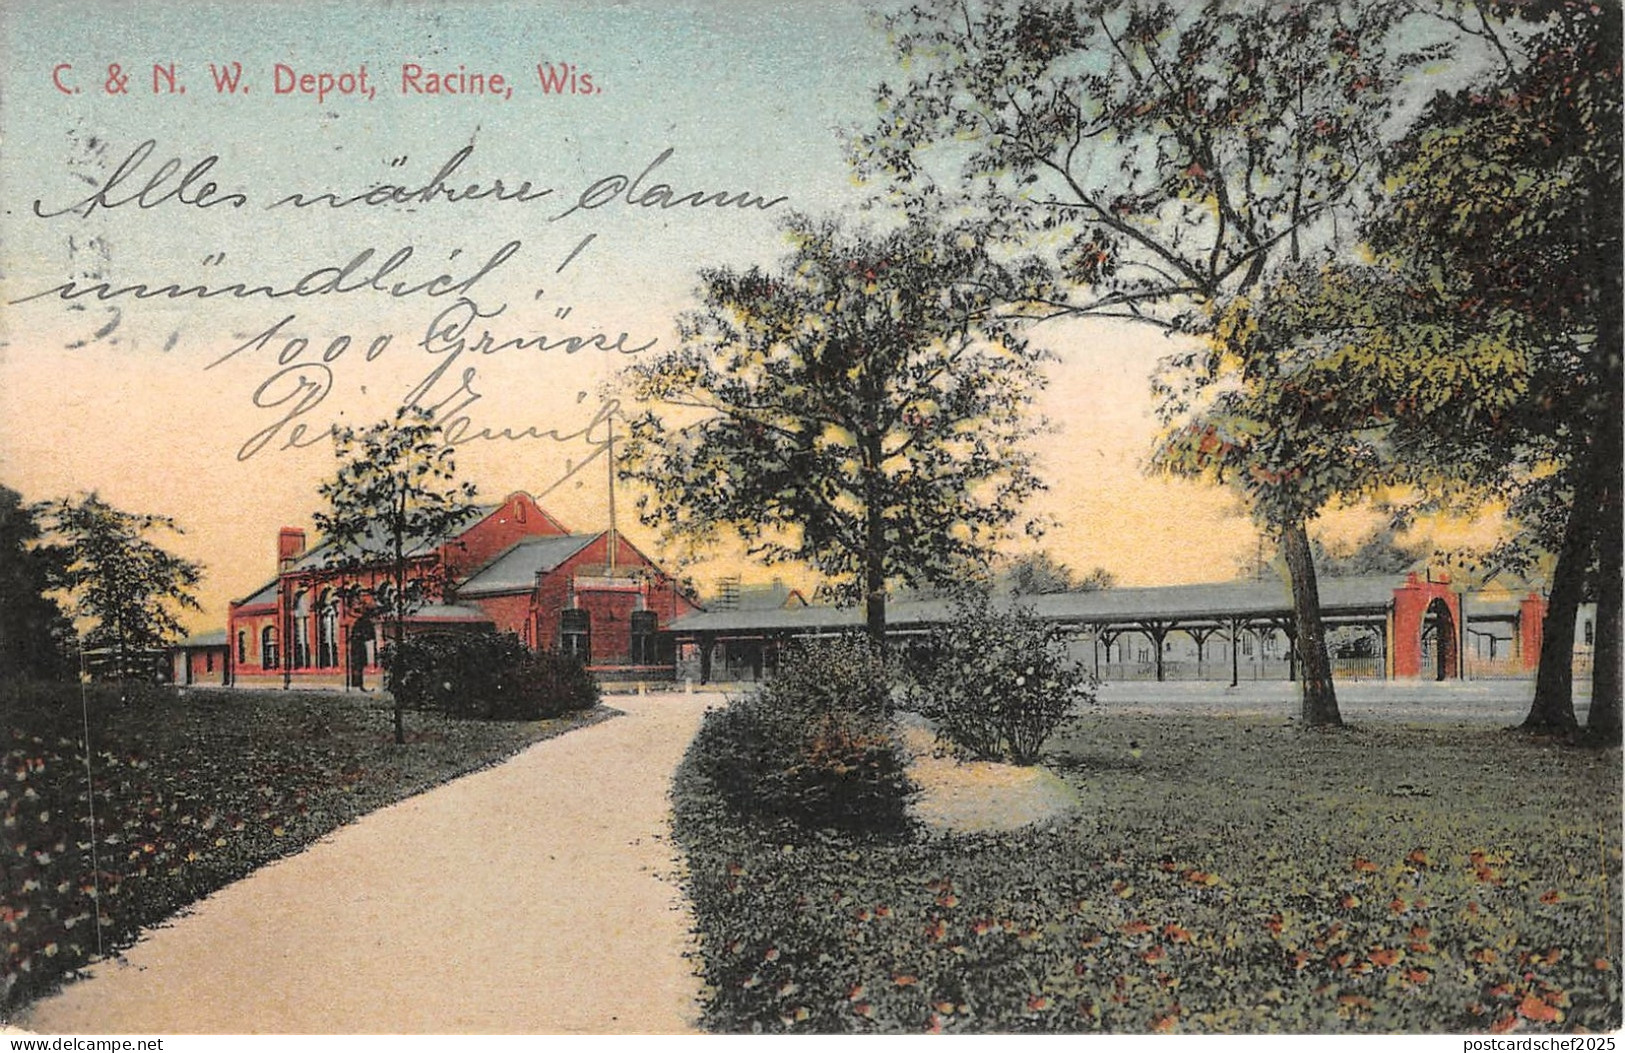 C. & N. W. Depot, Racine, Wis.
Alles nähere dann
mündlich!
1000 Grüsse
Dein Emil
delcampe.net
postcardschef2025